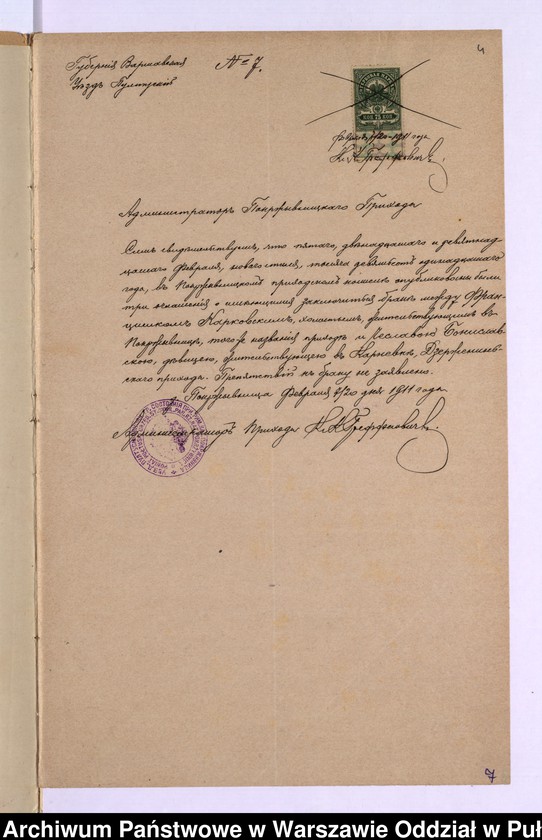 4
Губернія Варшавская
Уѣздъ Пултускій
№ 7.
КОП 75 КОП
1911 года
Администраторъ Покрживницкаго Прихода
Симъ свидѣтельствуетъ, что пятаго, двѣнадцатаго и девятнад-
цатаго Февраля, новаго стиля, тысяча девятьсотъ одинадцатаго
года, въ Покрживницкомъ приходскомъ костелѣ опубликованы были
три оглашенія о имѣющимся заключиться бракѣ между Фран-
цишкомъ Нарковскимъ, холостымъ, жительствующимъ въ
Покрживницѣ, того же названія приходѣ и Чеславою
дѣвицею, жительствующею въ
скаго прихода. Препятствій къ браку не заявлено.
Покрживница Февраля 7/20 дня 1911 года.
Администраторъ Прихода
7
Archiwum Państwowe w Warszawie Oddział w Puł